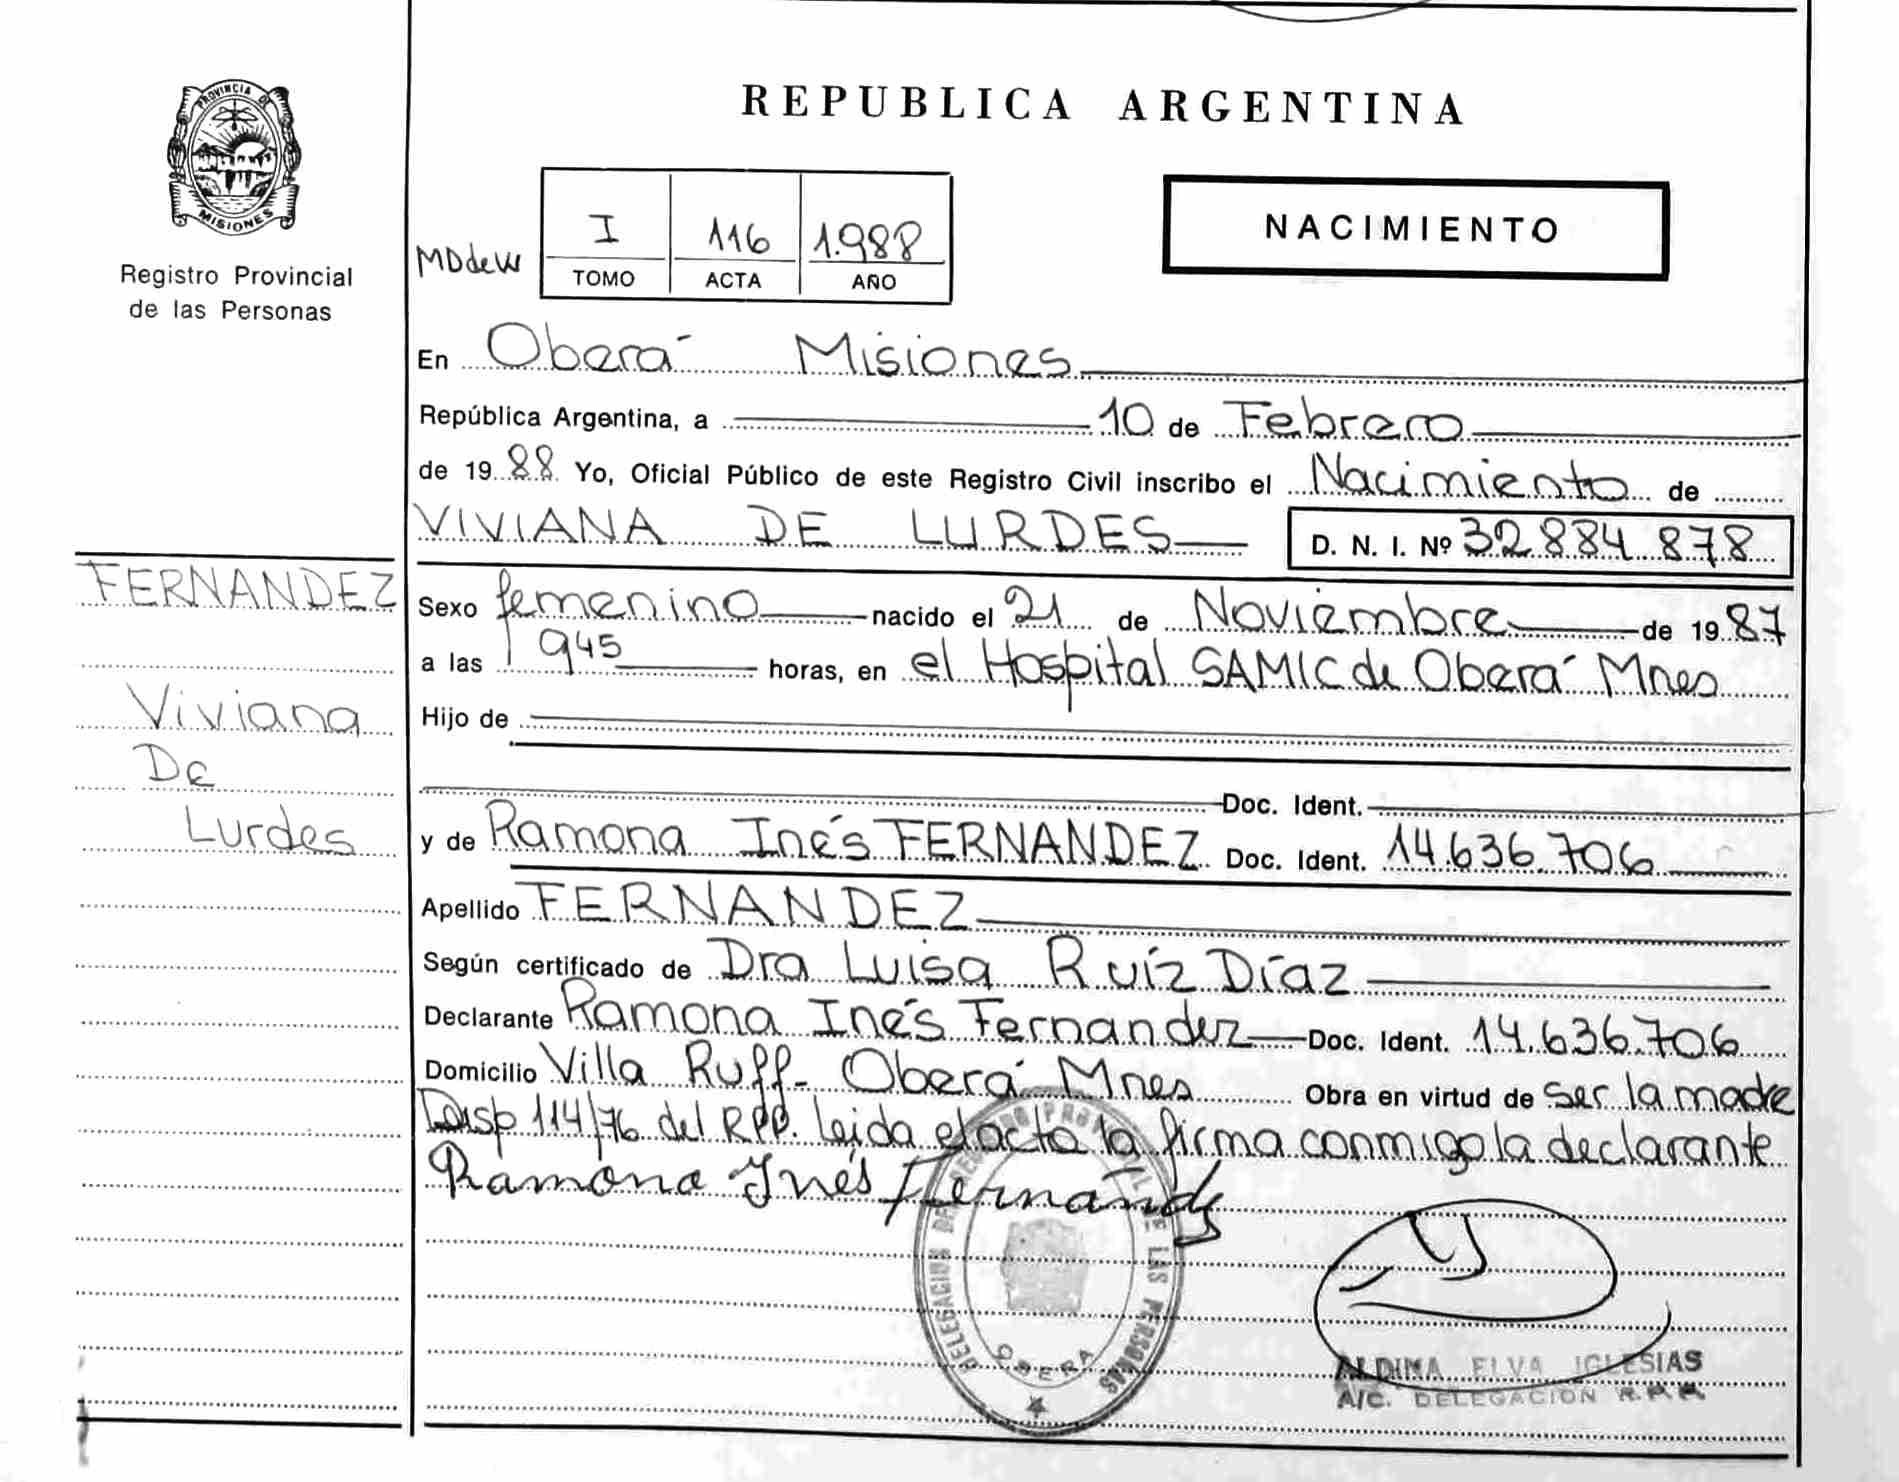 PROVINCIA DE
MISIONES
Registro Provincial
de las Personas
REPUBLICA ARGENTINA
MDdeW
I 116 1.988
TOMO ACTA AÑO
NACIMIENTO
En Oberá Misiones
República Argentina, a 10 de Febrero
de 1988 Yo, Oficial Público de este Registro Civil inscribo el Nacimiento de
VIVIANA DE LURDES D. N. I. Nº 32.884.878
FERNANDEZ
Viviana
De
Lurdes
Sexo femenino nacido el 21 de Noviembre de 1987
a las 945 horas, en el Hospital SAMIC de Oberá Mnes
Hijo de
Doc. Ident.
y de Ramona Inés FERNANDEZ Doc. Ident. 14.636.706
Apellido FERNANDEZ
Según certificado de Dra Luisa Ruíz Díaz
Declarante Ramona Inés Fernandez Doc. Ident. 14.636.706
Domicilio Villa Ruff- Oberá Mnes Obra en virtud de ser la madre
Disp 114/76 del RPP. leida el acta la firma conmigo la declarante
Ramona Inés Fernández
DELEGACION DE LAS PERSONAS
OBERA
ALDINA ELVA IGLESIAS
A/C. DELEGACION R.P.P.